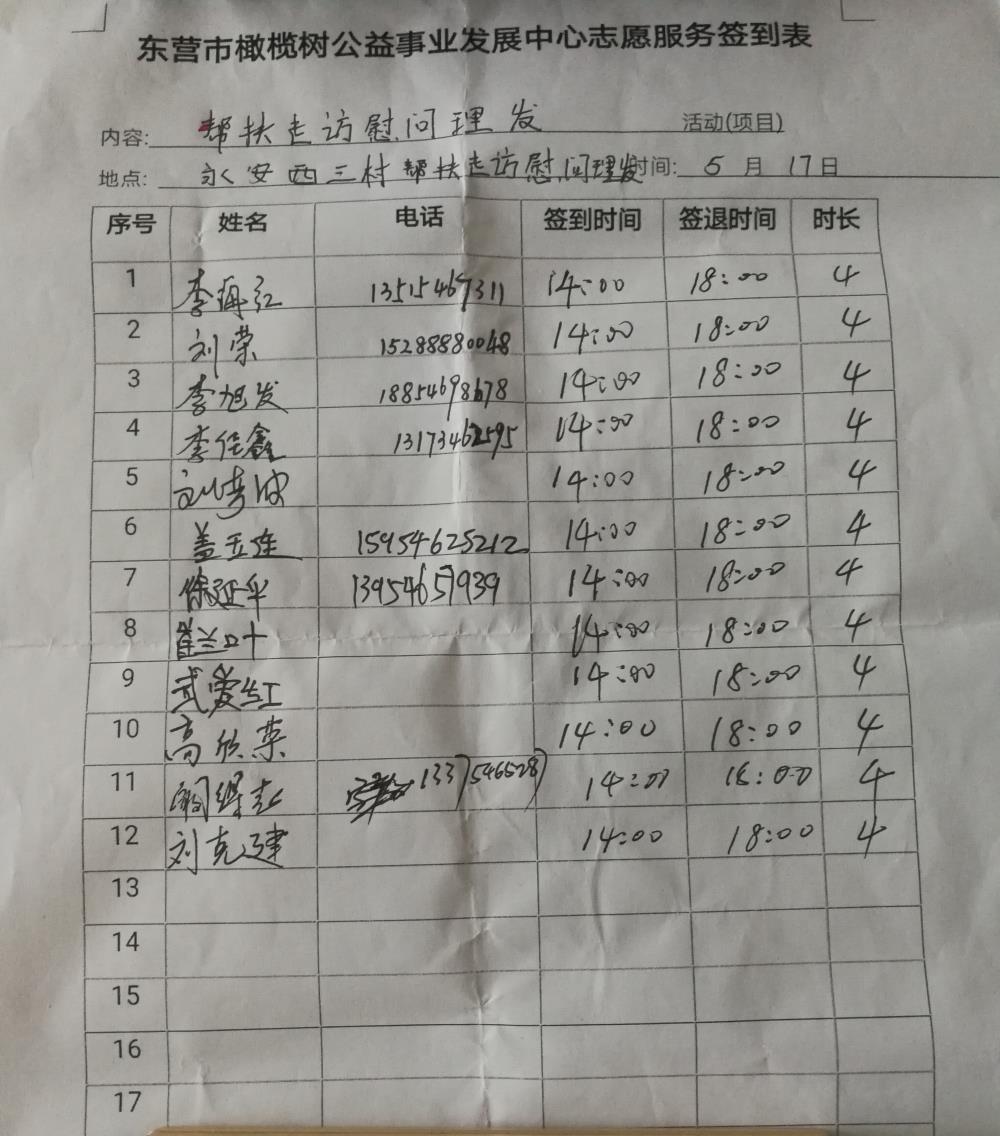 东营市橄榄树公益事业发展中心志愿服务签到表
内容: 帮扶走访慰问理发 活动(项目)
地点: 永安西三村帮扶走访慰问理发 时间: 5 月 17 日
序号 姓名 电话 签到时间 签退时间 时长
1 李再红 13515467311 14:00 18:00 4
2 刘荣 15288880048 14:00 18:00 4
3 李旭发 18854698678 14:00 18:00 4
4 李佳鑫 13173462595 14:00 18:00 4
5 14:00 18:00 4
6 盖玉连 15954625212 14:00 18:00 4
7 徐延平 13954657939 14:00 18:00 4
8 14:00 18:00 4
9 武爱红 14:00 18:00 4
10 高欣荣 14:00 18:00 4
11 14:00 18:00 4
12 刘克建 14:00 18:00 4
13
14
15
16
17